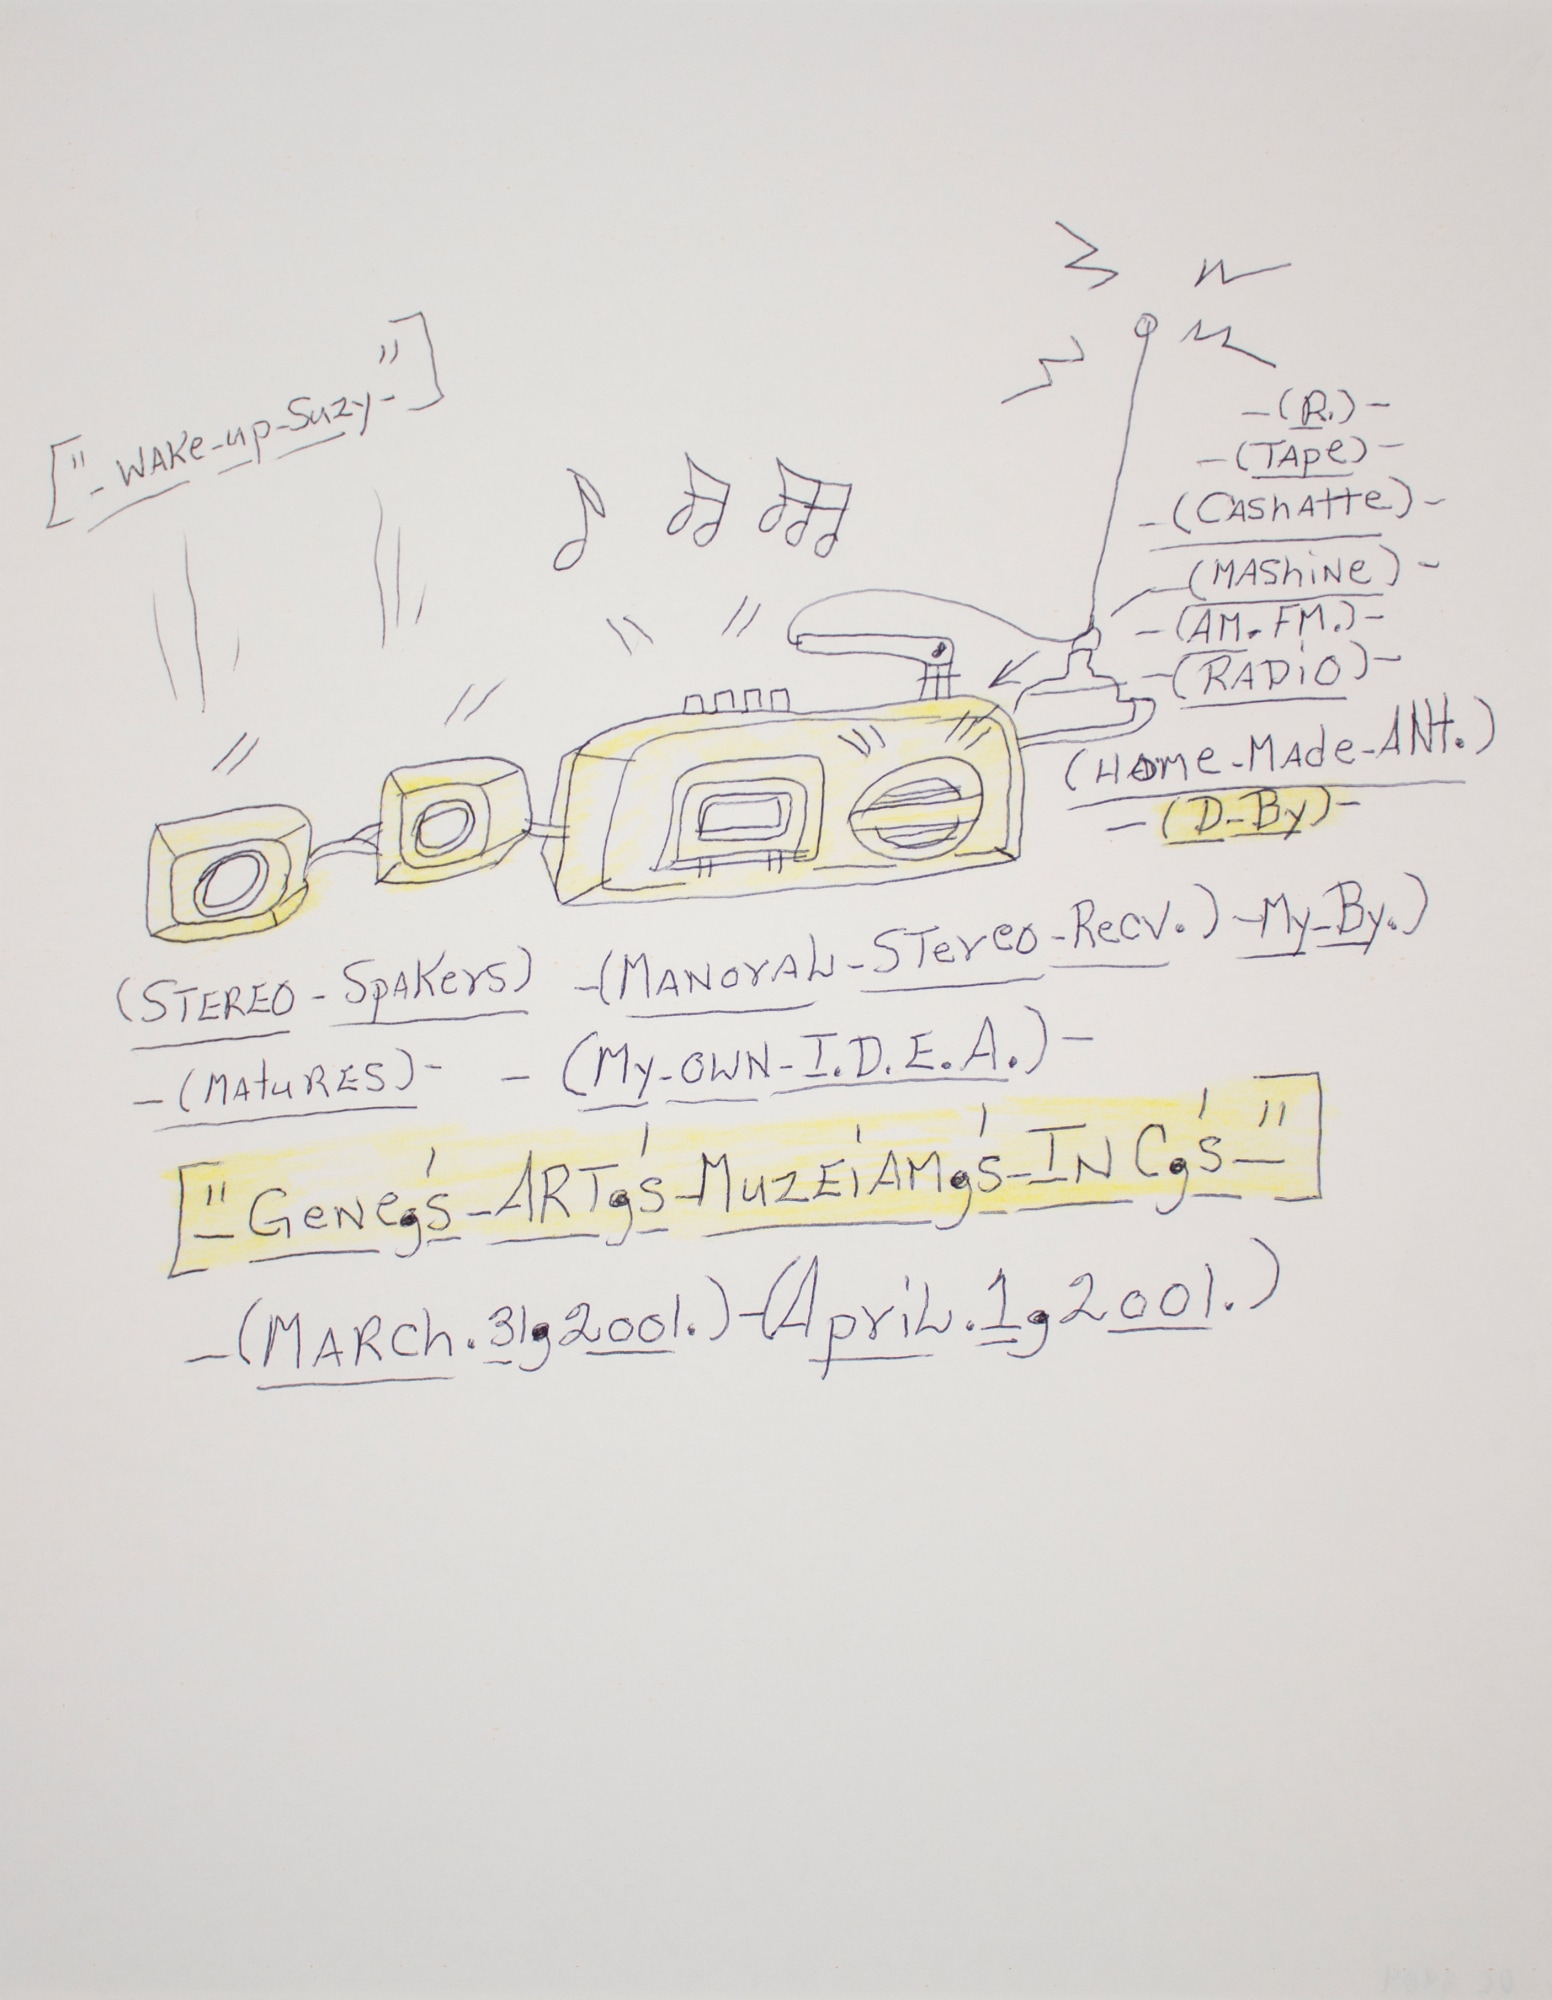 ["-WAKe-up-Suzy-"]
-(R.)-
-(TApe)-
-(CAShAtte)-
-(MAShiNe)-
-(AM.FM.)-
-(RADiO)-
(HOMe-MAde-ANt.)
-(D-By)-
(STEREO-SpAKerS) -(MANorAL-STereo-Recv.)-My-By.)
-(MAtuRES)- -(My-OWN-I.D.E.A.)-
["-GeNegs'-ARTgs'-MuzEiAMgs'-INCgs'-"]
-(MARCh.31g2001.)-(ApriL.1g2001.)